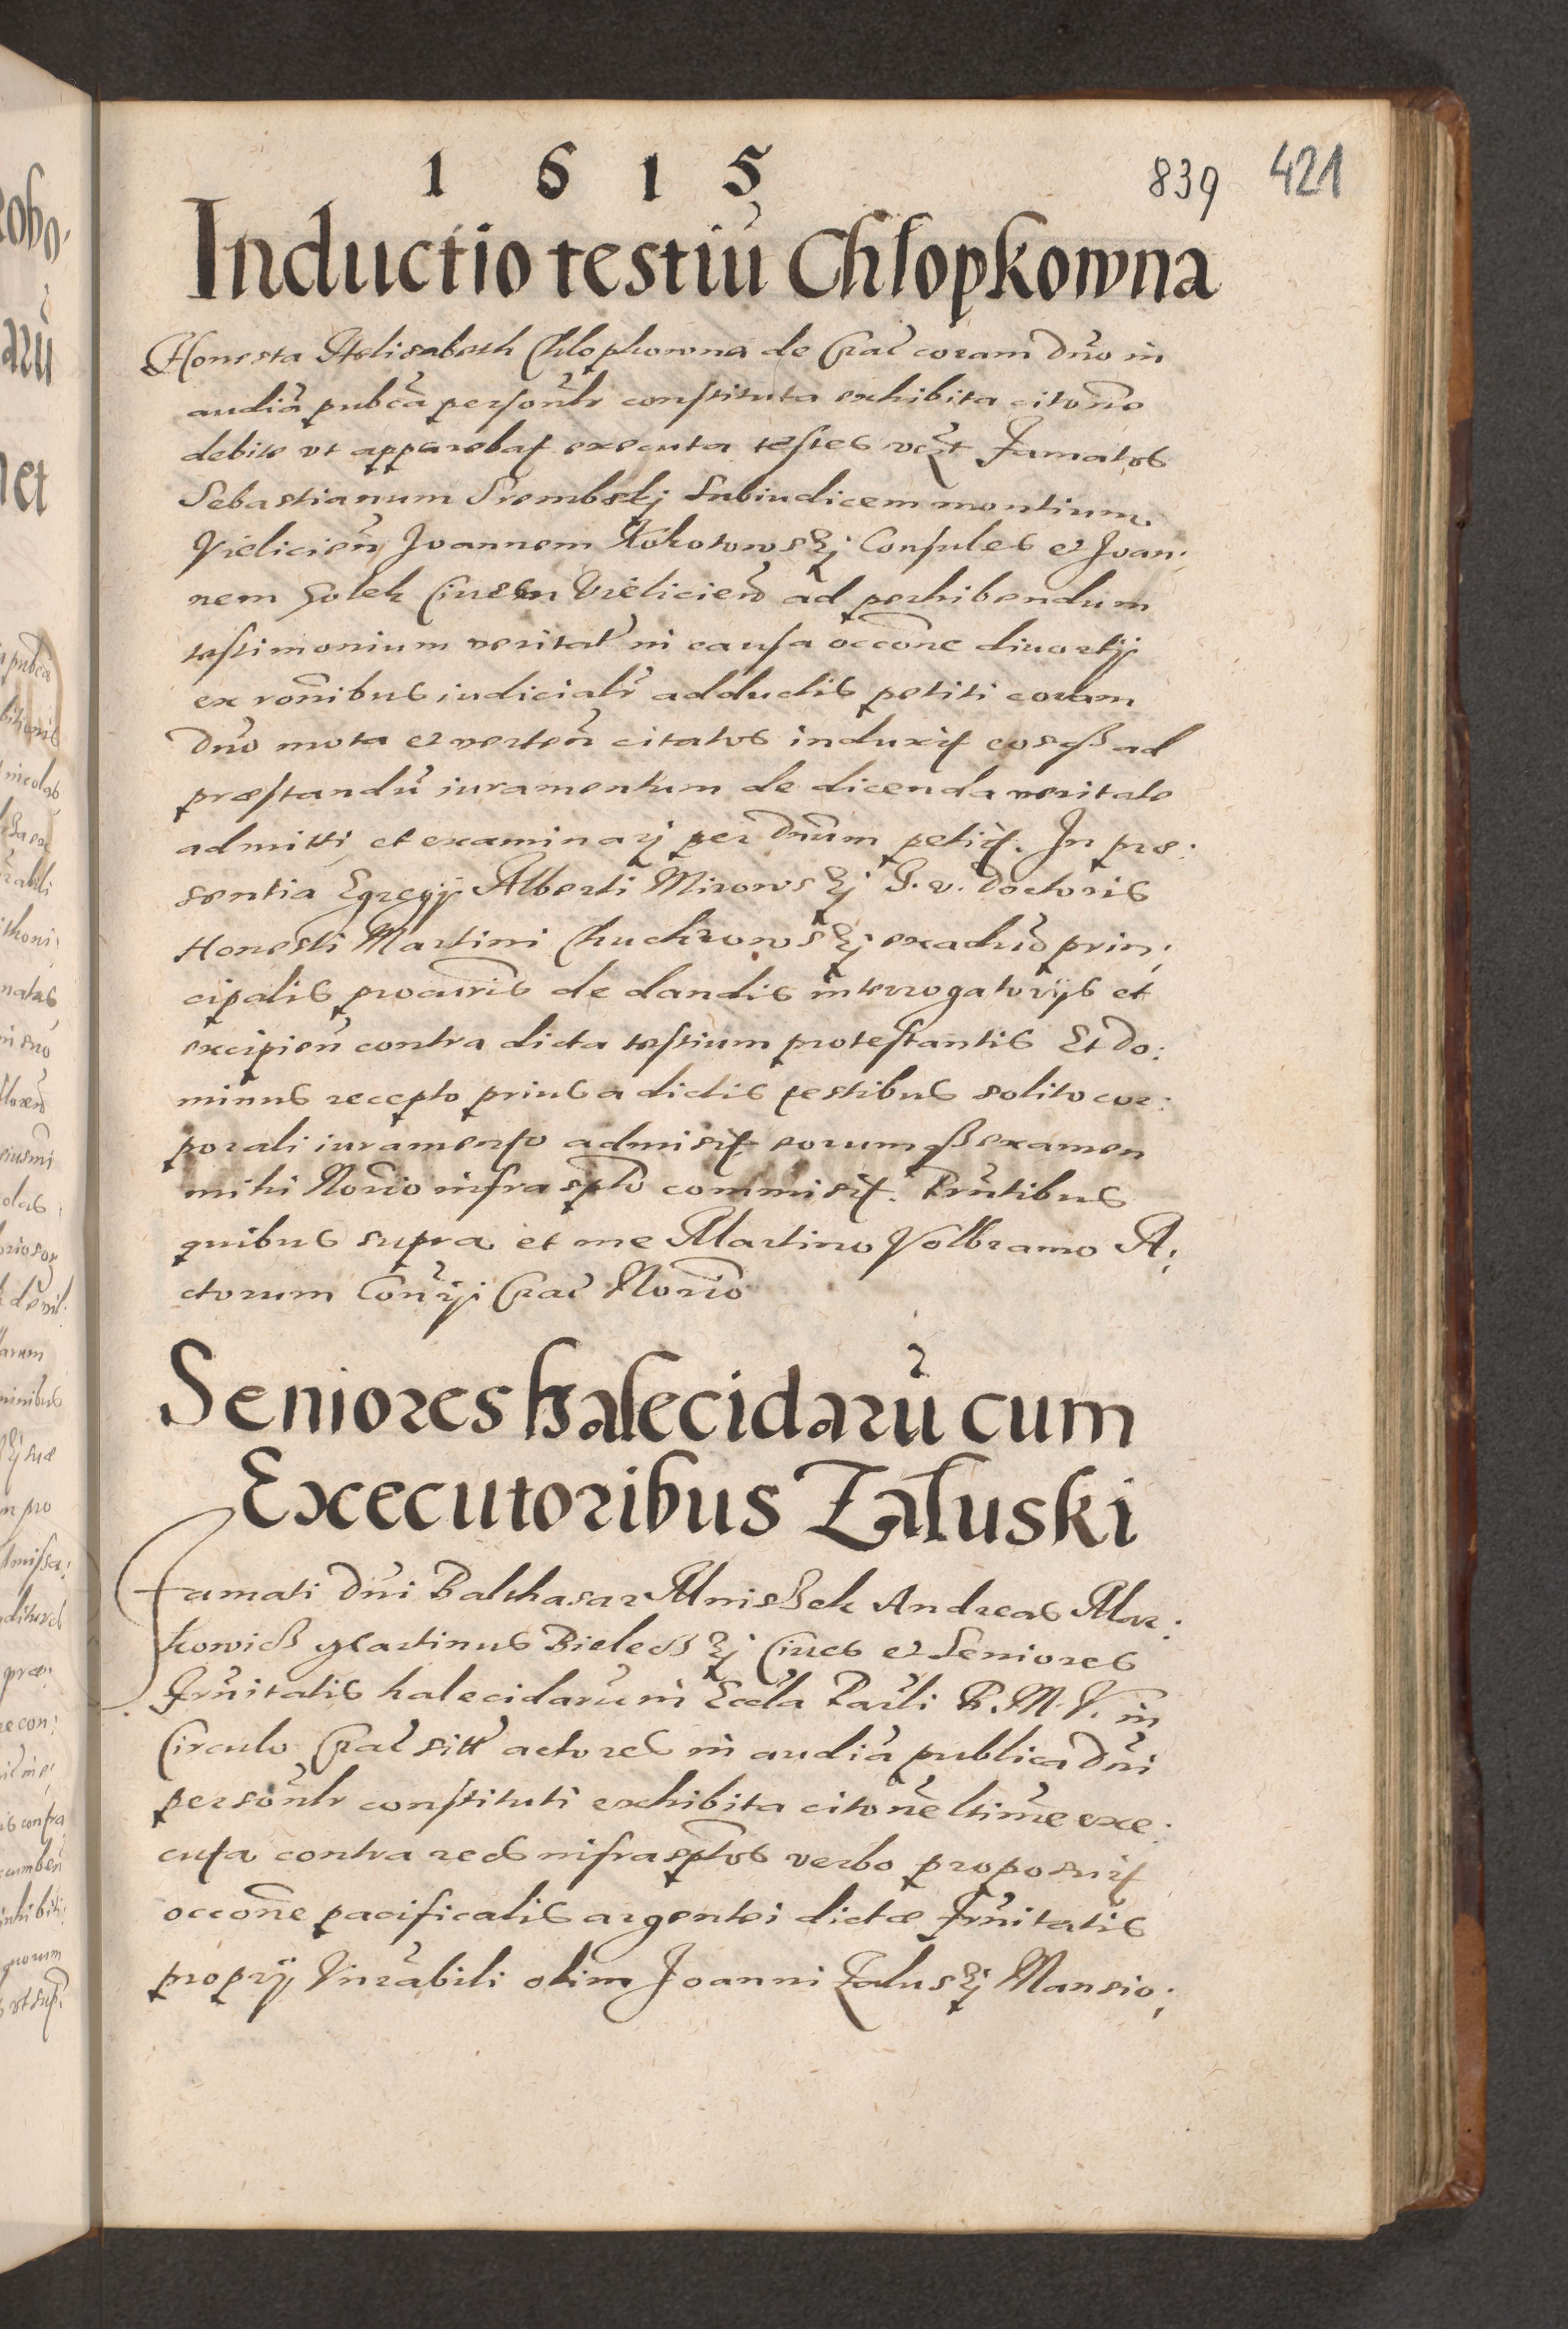 1 6 1 5
839 421
Inductio testiũ Chłopkowna
Honesta Helisabeth Chlopkowna de Crac̃ coram Dño in
audiã pubcã persoñlr constituta exhibita citoñe
debite vt apparebat executa testes vczt Famatos
Sebastianum Srembski Subiudicem montium
Vielicień Joannem Kokotowskj Consules et Joan:
nem Golek Ciuem Vielicieñ ad perhibendum
testimonium veritat̃ in causa occõne diuortij
ex rõnibus iudicialr̃ adductis petiti coram
Dño mota et verteñ citatos induxit eosqß ad
præstandũ iuramentum de dicenda veritate
admitti et examinarj per Dnũm petijt. In præ:
sentia Egregij Alberti Mirowskj J. v. Doctoris
Honesti Martini Chuchrowskj ex aduõ prin:
cipalis procuris de dandis interrogatorijs et
excipień contra dicta testium protestantis Et Do:
minus recepto prius a dictis testibus solito cor:
porali iuramento admisit eorumqß examen
mihi Norio infrascpto commisit. Pñtibus
quibus supra et me Martino Volbramo A:
ctorum Coñrij Crac̃ Norio
Seniores halecidarũ cum
Executoribus Załuski
Famati Dñi Balthasar Mnißek Andreas Mar:
kowicß Martinus Bielecßkj Ciues et Seniores
Frñitatis halecidarum in Eccla Parli B. M. V. in
Circulo Crac̃ sitt̃ actores in audiã publica Dñi
persoñlr constituti exhibita citoñe ltime exe:
cuta contra reos infrascptos verbo proposuit
occõne pacificalis argentei dictæ Frñitatis
proprij Vnrãbili olim Joanni Zaluskj Mansio: